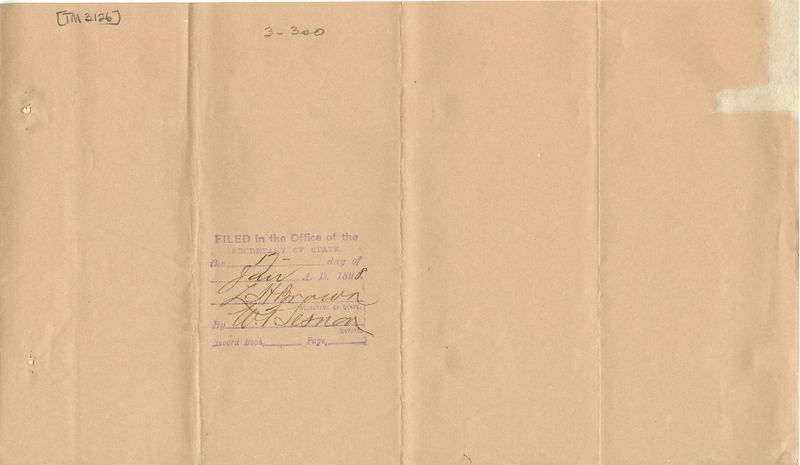 [TM 3126]
3-300
FILED in the Office of the
SECRETARY OF STATE
the 12- day of
Jan A. D. 1898.
L. H. Brown
SECRETARY OF STATE.
By W. T. Sesnon
DEPUTY.
Record Book, Page,